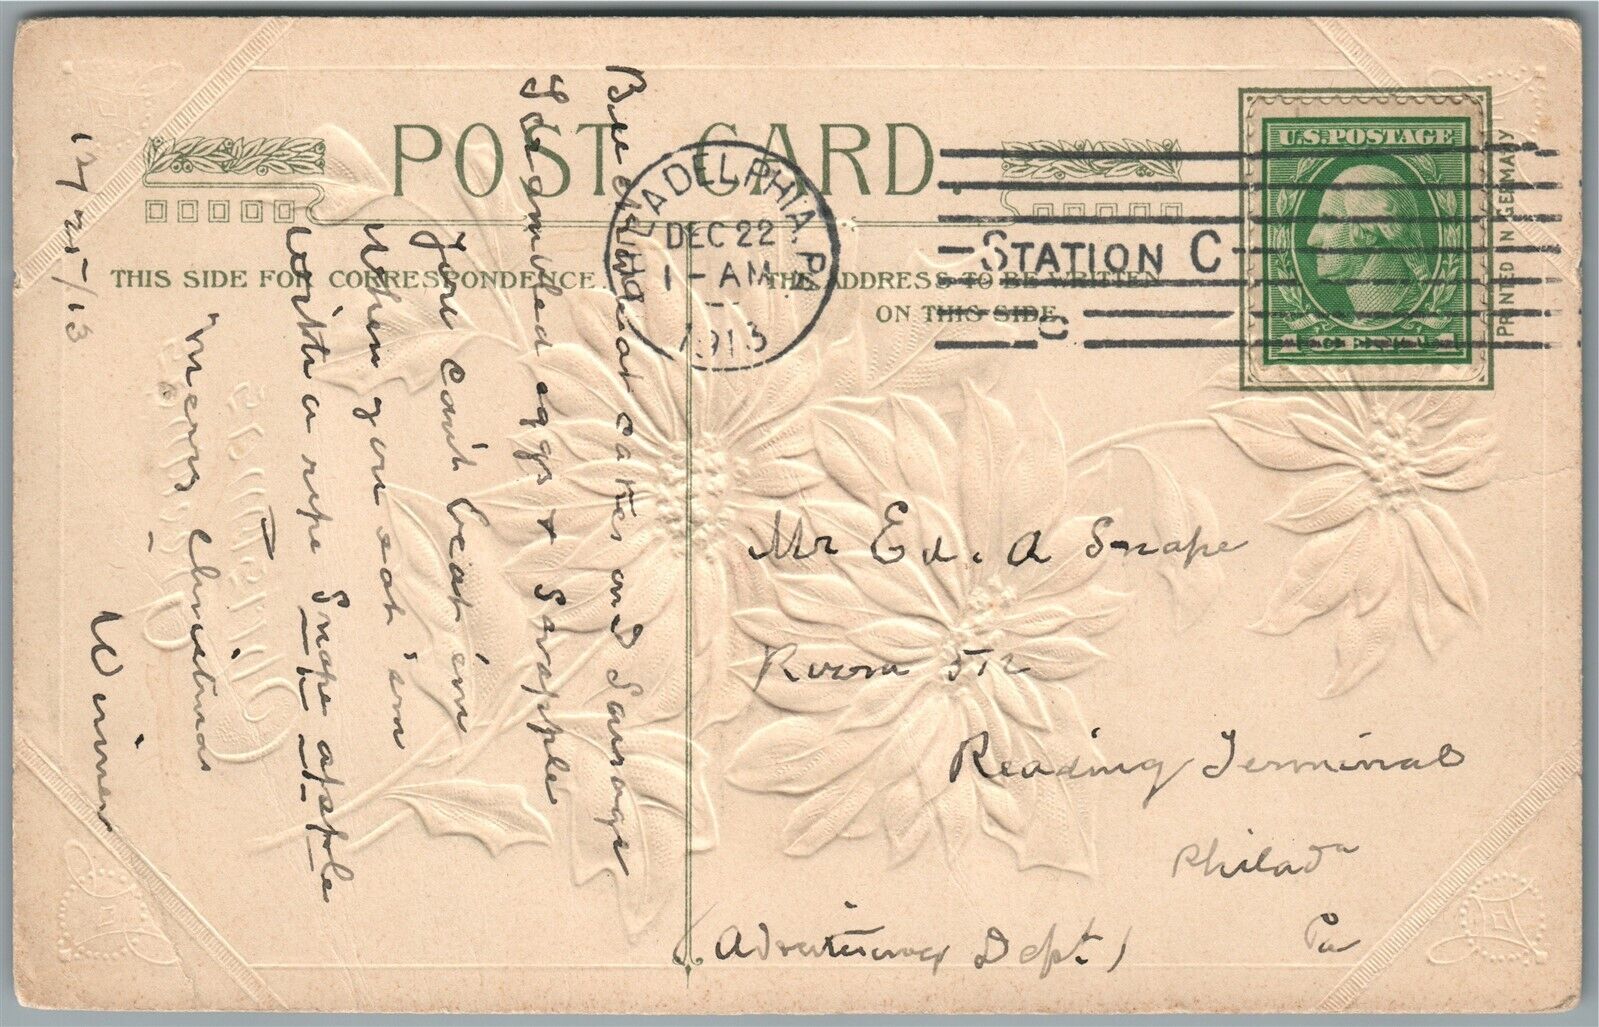 POST CARD
THIS SIDE FOR CORRESPONDENCE.
THE ADDRESS TO BE WRITTEN
ON THIS SIDE.
PHILADELPHIA, PA.
DEC 22
1-AM
1913
STATION C
C
U.S. POSTAGE
PRINTED IN GERMANY
Buckwheat cakes and Sausage
Scrambled eggs & Scrapple
You can't beat 'em
When you eat 'em
With a ripe Snape apple
"Merry Christmas
12/25/13
Mr Ed. A Snape
Room 512
Reading Terminal
Philada
Pa
(Advertising Dept.)